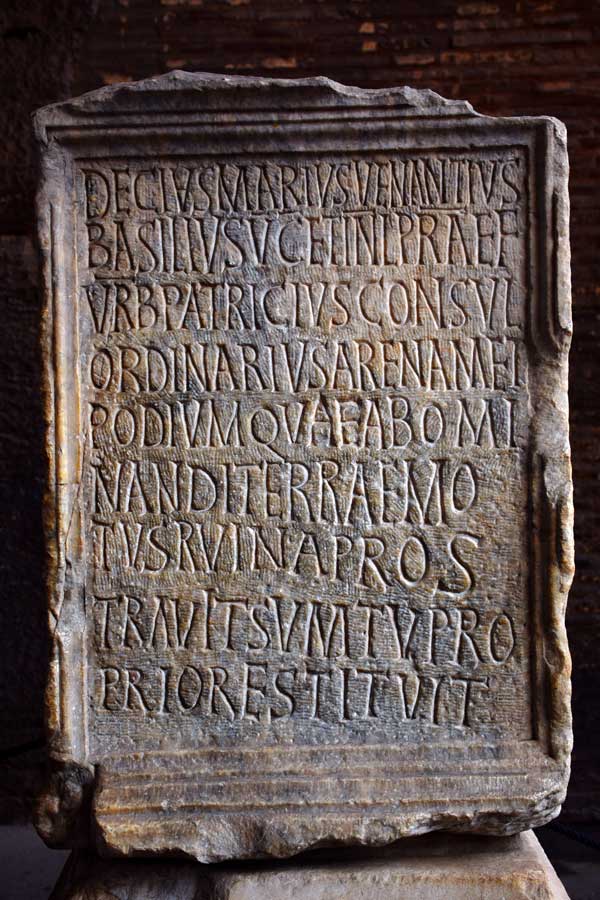 DECIUSMARIUSVENANTIUS
BASILIUSVCETINLPRAEF
URBPATRICIUSCONSUL
ORDINARIUSARENAMET
PODIUMQUAEABOMI
NANDITERRAEMO
TUSRUINAPROS
TRAUITSUMTUPRO
PRIORESTITUIT